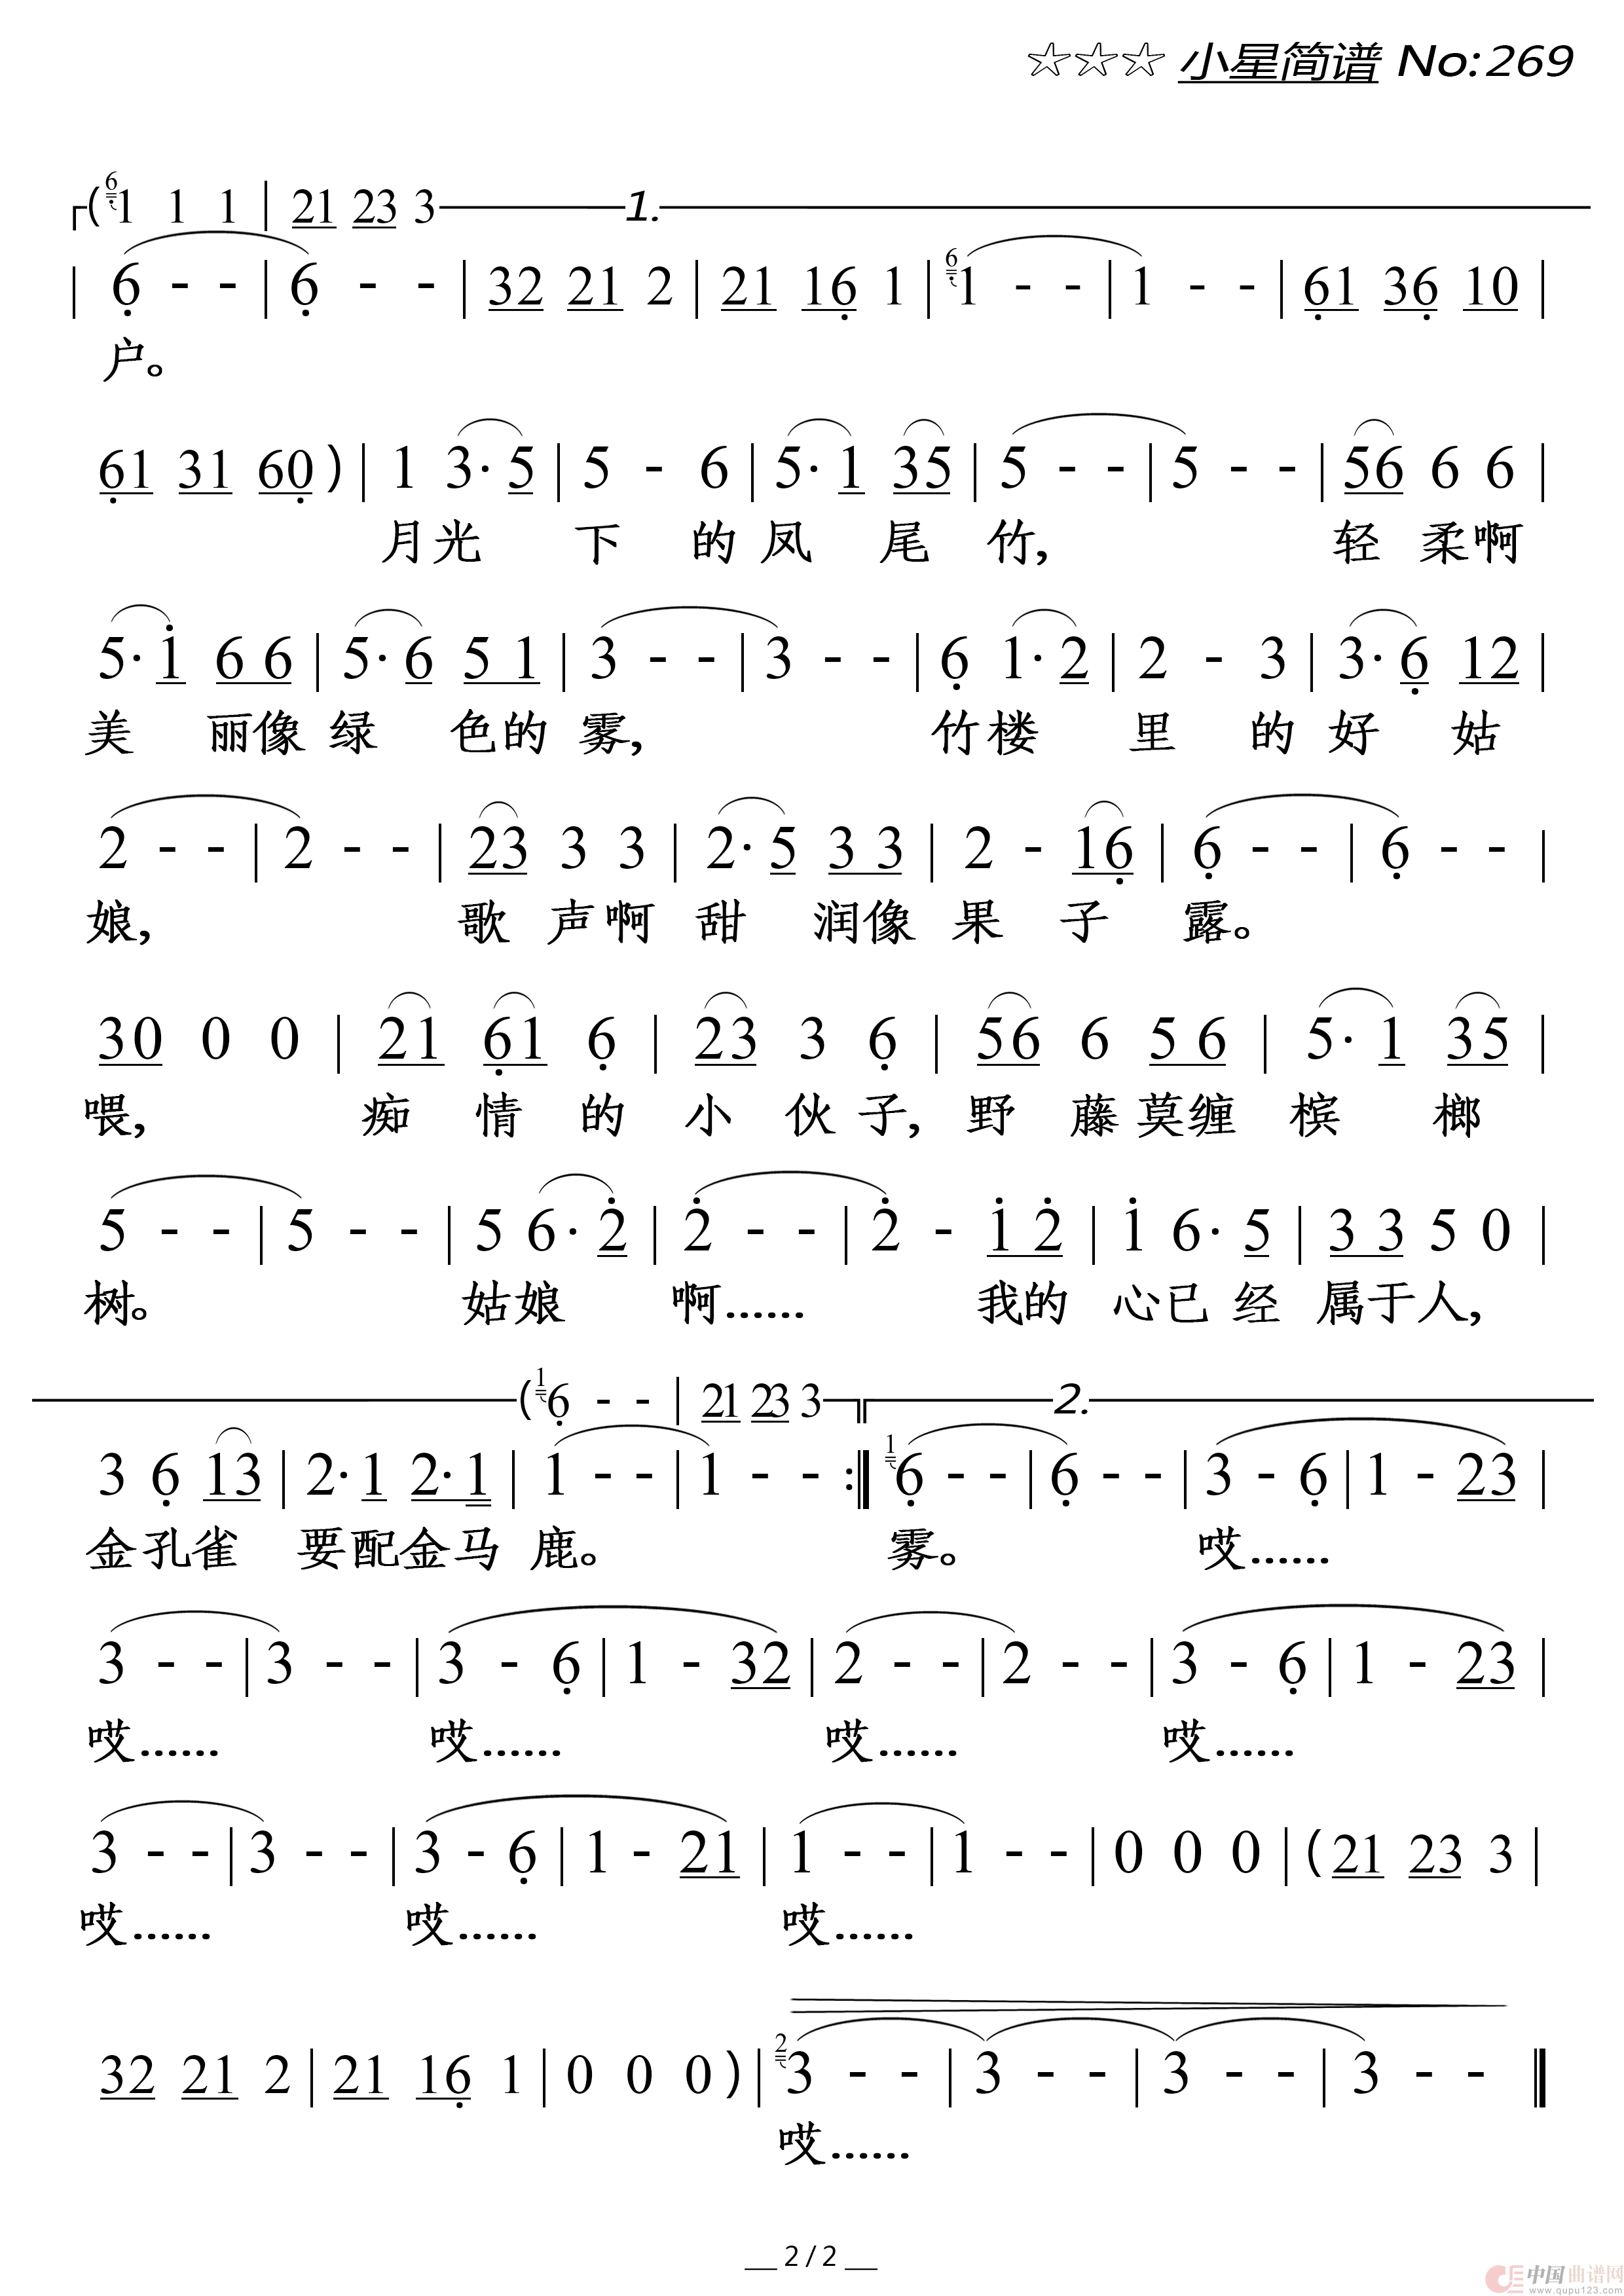 ☆☆☆ 小星简谱 No:269
( 6 1 1 1 | 21 23 3 1.
| 6 - - | 6 - - | 32 21 2 | 21 16 1 | 6 1 - - | 1 - - | 61 36 10 |
户。
61 31 60 ) | 1 3· 5 | 5 - 6 | 5· 1 35 | 5 - - | 5 - - | 56 6 6 |
月光 下 的凤 尾 竹, 轻 柔啊
5· 1 6 6 | 5· 6 5 1 | 3 - - | 3 - - | 6 1· 2 | 2 - 3 | 3· 6 12 |
美 丽像 绿 色的 雾, 竹楼 里 的 好 姑
2 - - | 2 - - | 23 3 3 | 2· 5 3 3 | 2 - 16 | 6 - - | 6 - - |
娘, 歌 声啊 甜 润像 果 子 露。
30 0 0 | 21 61 6 | 23 3 6 | 56 6 5 6 | 5· 1 35 |
喂, 痴 情 的 小 伙 子, 野 藤 莫缠 槟 榔
5 - - | 5 - - | 5 6· 2 | 2 - - | 2 - 1 2 | 1 6· 5 | 3 3 5 0 |
树。 姑娘 啊…… 我的 心已 经 属于人,
( 1 6 - - | 21 23 3 2.
3 6 13 | 2· 1 2· 1 | 1 - - | 1 - - :‖ 1 6 - - | 6 - - | 3 - 6 | 1 - 23 |
金孔雀 要配金马 鹿。 雾。 哎……
3 - - | 3 - - | 3 - 6 | 1 - 32 | 2 - - | 2 - - | 3 - 6 | 1 - 23 |
哎…… 哎…… 哎…… 哎……
3 - - | 3 - - | 3 - 6 | 1 - 21 | 1 - - | 1 - - | 0 0 0 | ( 21 23 3 |
哎…… 哎…… 哎……
32 21 2 | 21 16 1 | 0 0 0 ) | 2 3 - - | 3 - - | 3 - - | 3 - - ‖
哎……
2 / 2
中国曲谱网
www.qupu123.com